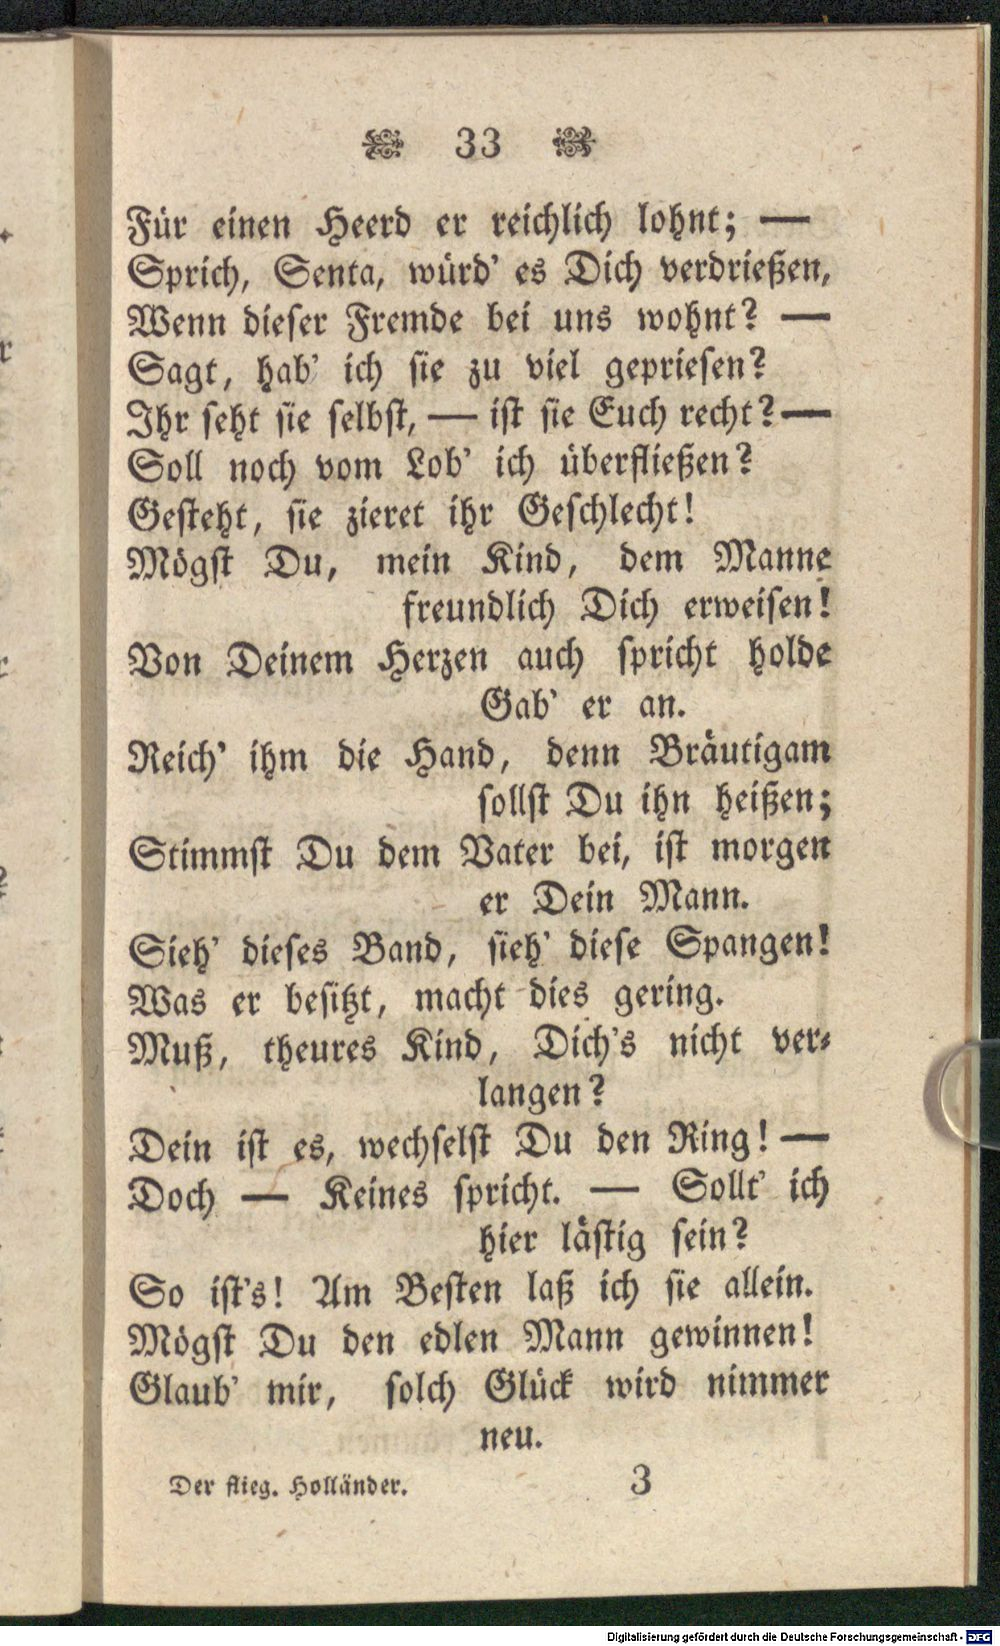 33
Für einen Heerd er reichlich lohnt; —
Sprich, Senta, würd' es Dich verdrießen,
Wenn dieser Fremde bei uns wohnt? —
Sagt, hab' ich sie zu viel gepriesen?
Ihr seht sie selbst, — ist sie Euch recht? —
Soll noch vom Lob' ich überfließen?
Gesteht, sie zieret ihr Geschlecht!
Mögst Du, mein Kind, dem Manne
freundlich Dich erweisen!
Von Deinem Herzen auch spricht holde
Gab' er an.
Reich' ihm die Hand, denn Bräutigam
sollst Du ihn heißen;
Stimmst Du dem Vater bei, ist morgen
er Dein Mann.
Sieh' dieses Band, sieh' diese Spangen!
Was er besitzt, macht dies gering.
Muß, theures Kind, Dich's nicht ver-
langen?
Dein ist es, wechselst Du den Ring! —
Doch — Keines spricht. — Sollt' ich
hier lästig sein?
So ist's! Am Besten laß ich sie allein.
Mögst Du den edlen Mann gewinnen!
Glaub' mir, solch Glück wird nimmer
neu.
Der flieg. Holländer. 3
Digitalisierung gefördert durch die Deutsche Forschungsgemeinschaft - DFG